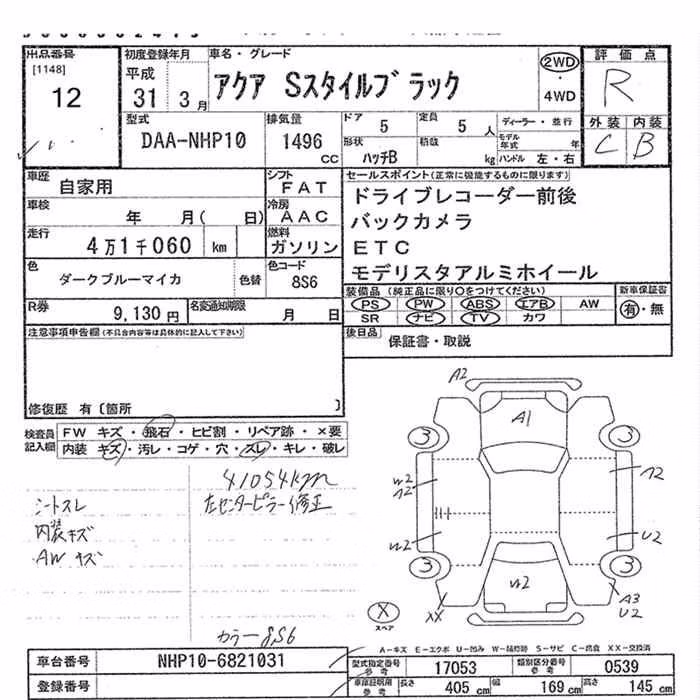 出品番号
[1148]
12
初度登録年月
平成
31 3月
車名・グレード
アクア Sスタイルブラック
2WD
・
4WD
評価点
R
外装 内装
C B
型式
DAA-NHP10
排気量
1496
CC
ドア
5
定員
5人
ディーラー・並行
形状
ハッチB
積載
kg
モデル年式 年
ハンドル 左・右
車歴
自家用
シフト
FAT
車検
年 月( 日)
冷房
AAC
走行
4万1千060 km
燃料
ガソリン
色
ダークブルーマイカ
色替
色コード
8S6
R券
9,130円
名変通知期限
月 日
セールスポイント(正常に機能するものに限ります)
ドライブレコーダー前後
バックカメラ
ETC
モデリスタアルミホイール
装備品(純正品に限り○をつけてください)
PS PW ABS エアB AW
SR ナビ TV カワ
新車保証書
有・無
後日品
保証書・取説
注意事項申告欄(不具合内容等は具体的に記入して下さい)
修復歴 有〔箇所 〕
検査員
記入欄
FW キズ・飛石・ヒビ割・リペア跡・×要
内装 キズ・汚レ・コゲ・穴・スレ・キレ・破レ
41054km
左センターピラー修正
シートスレ
内装キズ
AWキズ
カラー8S6
A2
A1
3
3
W2
A2
W2
U2
3
3
W2
XX
A3
U2
X
スペア
A-キズ E-エクボ U-凹み W-補修跡 S-サビ C-腐食 XX-交換済
車台番号
NHP10-6821031
登録番号
型式指定番号
参考
17053
類別区分番号
参考
0539
車庫証明用
参考
長さ
405 cm
幅
169 cm
高さ
145 cm